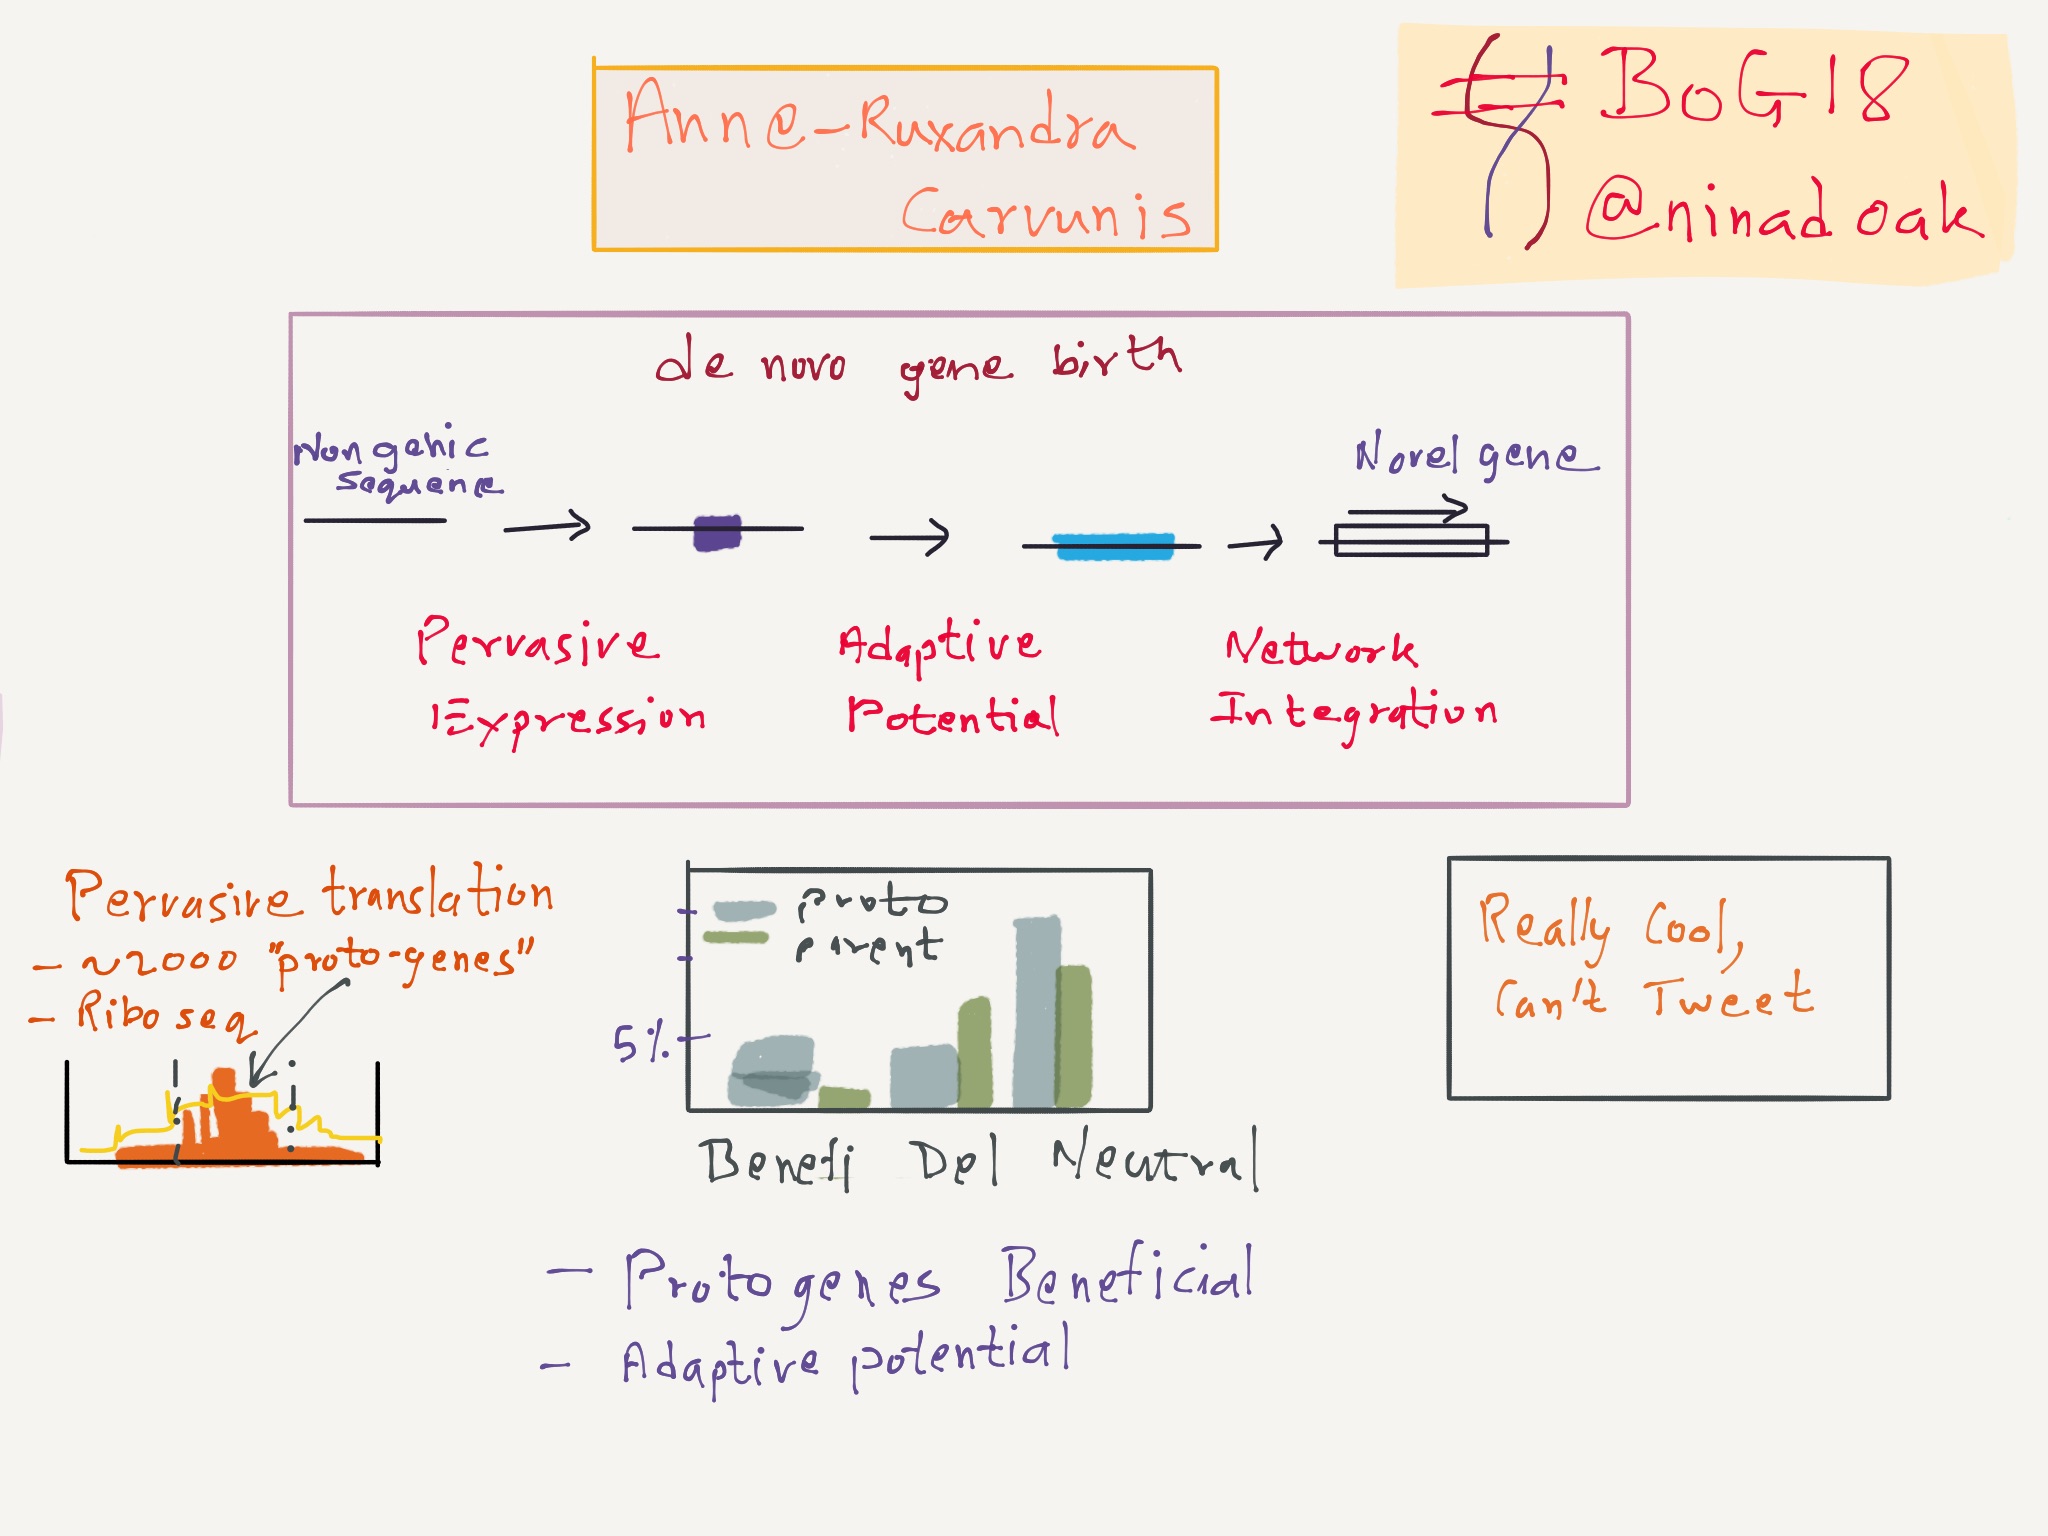 Anne-Ruxandra
Carvunis
#BoG18
@ninadoak
de novo gene birth
Non genic
sequence
Novel gene
Pervasive
Expression
Adaptive
Potential
Network
Integration
Pervasive translation
- ~2000 "proto-genes"
- Ribo seq
proto
parent
5%
Benefi Del Neutral
- Proto genes Beneficial
- Adaptive potential
Really Cool,
Can't Tweet